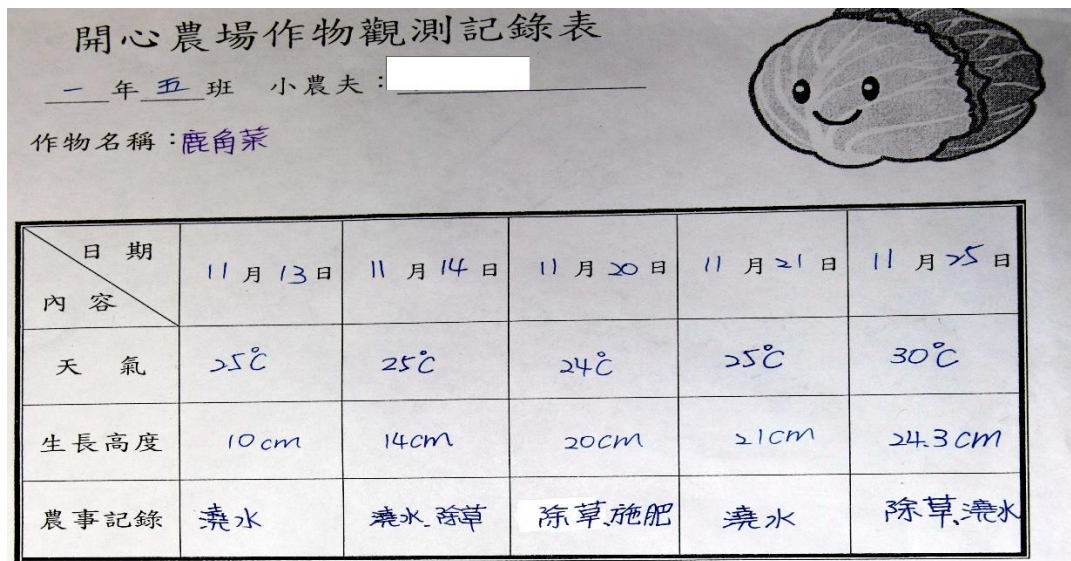 開心農場作物觀測記錄表
一年五班 小農夫：
作物名稱：鹿角菜
日期 11月13日 11月14日 11月20日 11月21日 11月25日
內容
天氣 25℃ 25℃ 24℃ 25℃ 30℃
生長高度 10cm 14cm 20cm 21cm 24.3cm
農事記錄 澆水 澆水、除草 除草、施肥 澆水 除草、澆水